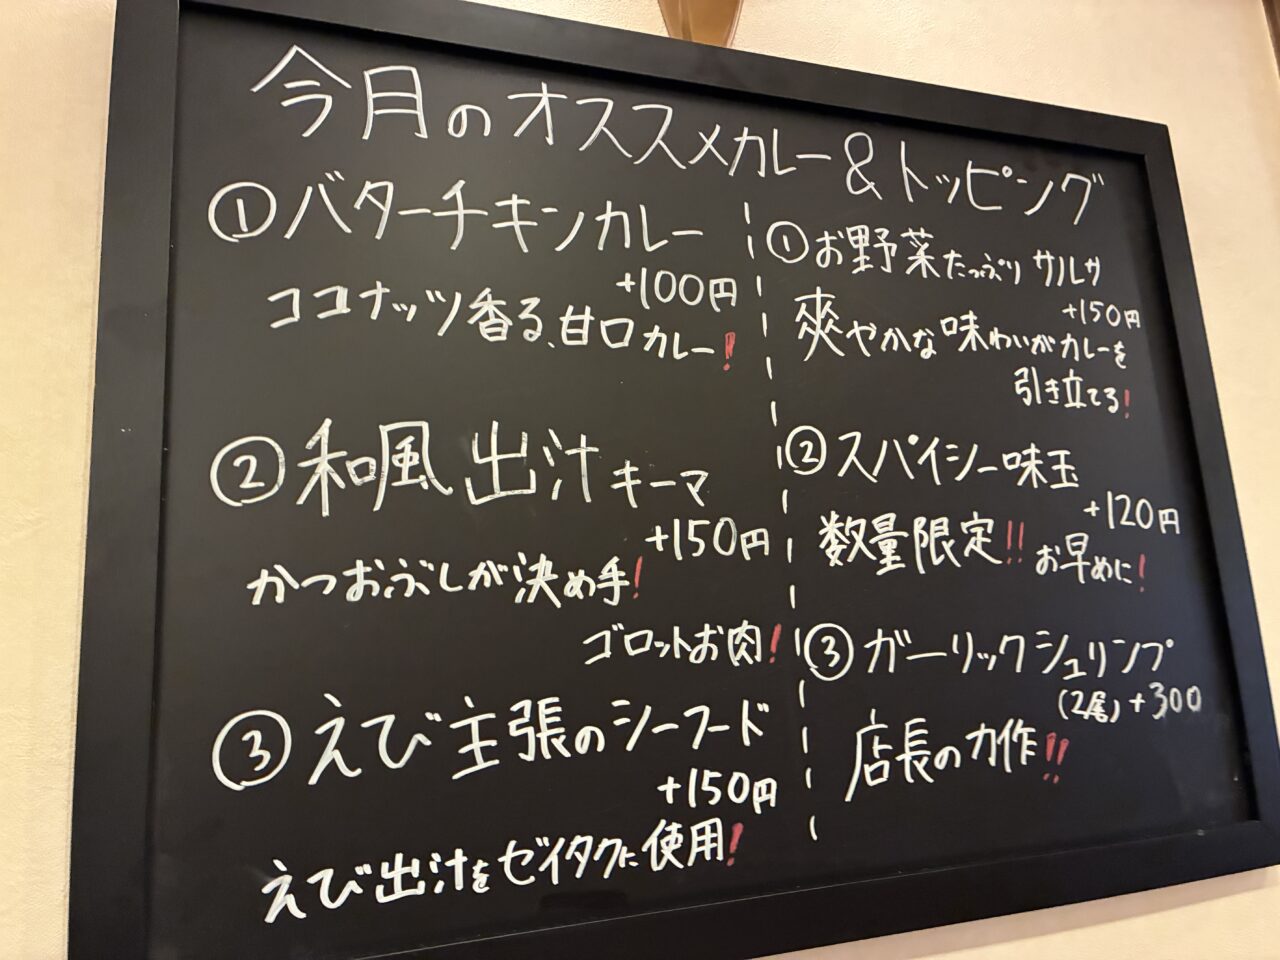 今月のオススメカレー&トッピング
①バターチキンカレー
+100円
ココナッツ香る、甘口カレー!
②和風出汁キーマ
+150円
かつおぶしが決め手!
ゴロットお肉!
③えび主張のシーフード
+150円
えび出汁をゼイタクに使用!
①お野菜たっぷりサルサ
+150円
爽やかな味わいがカレーを
引き立てる!
②スパイシー味玉
+120円
数量限定!!お早めに!
③ガーリックシュリンプ
(2尾)+300
店長の力作!!